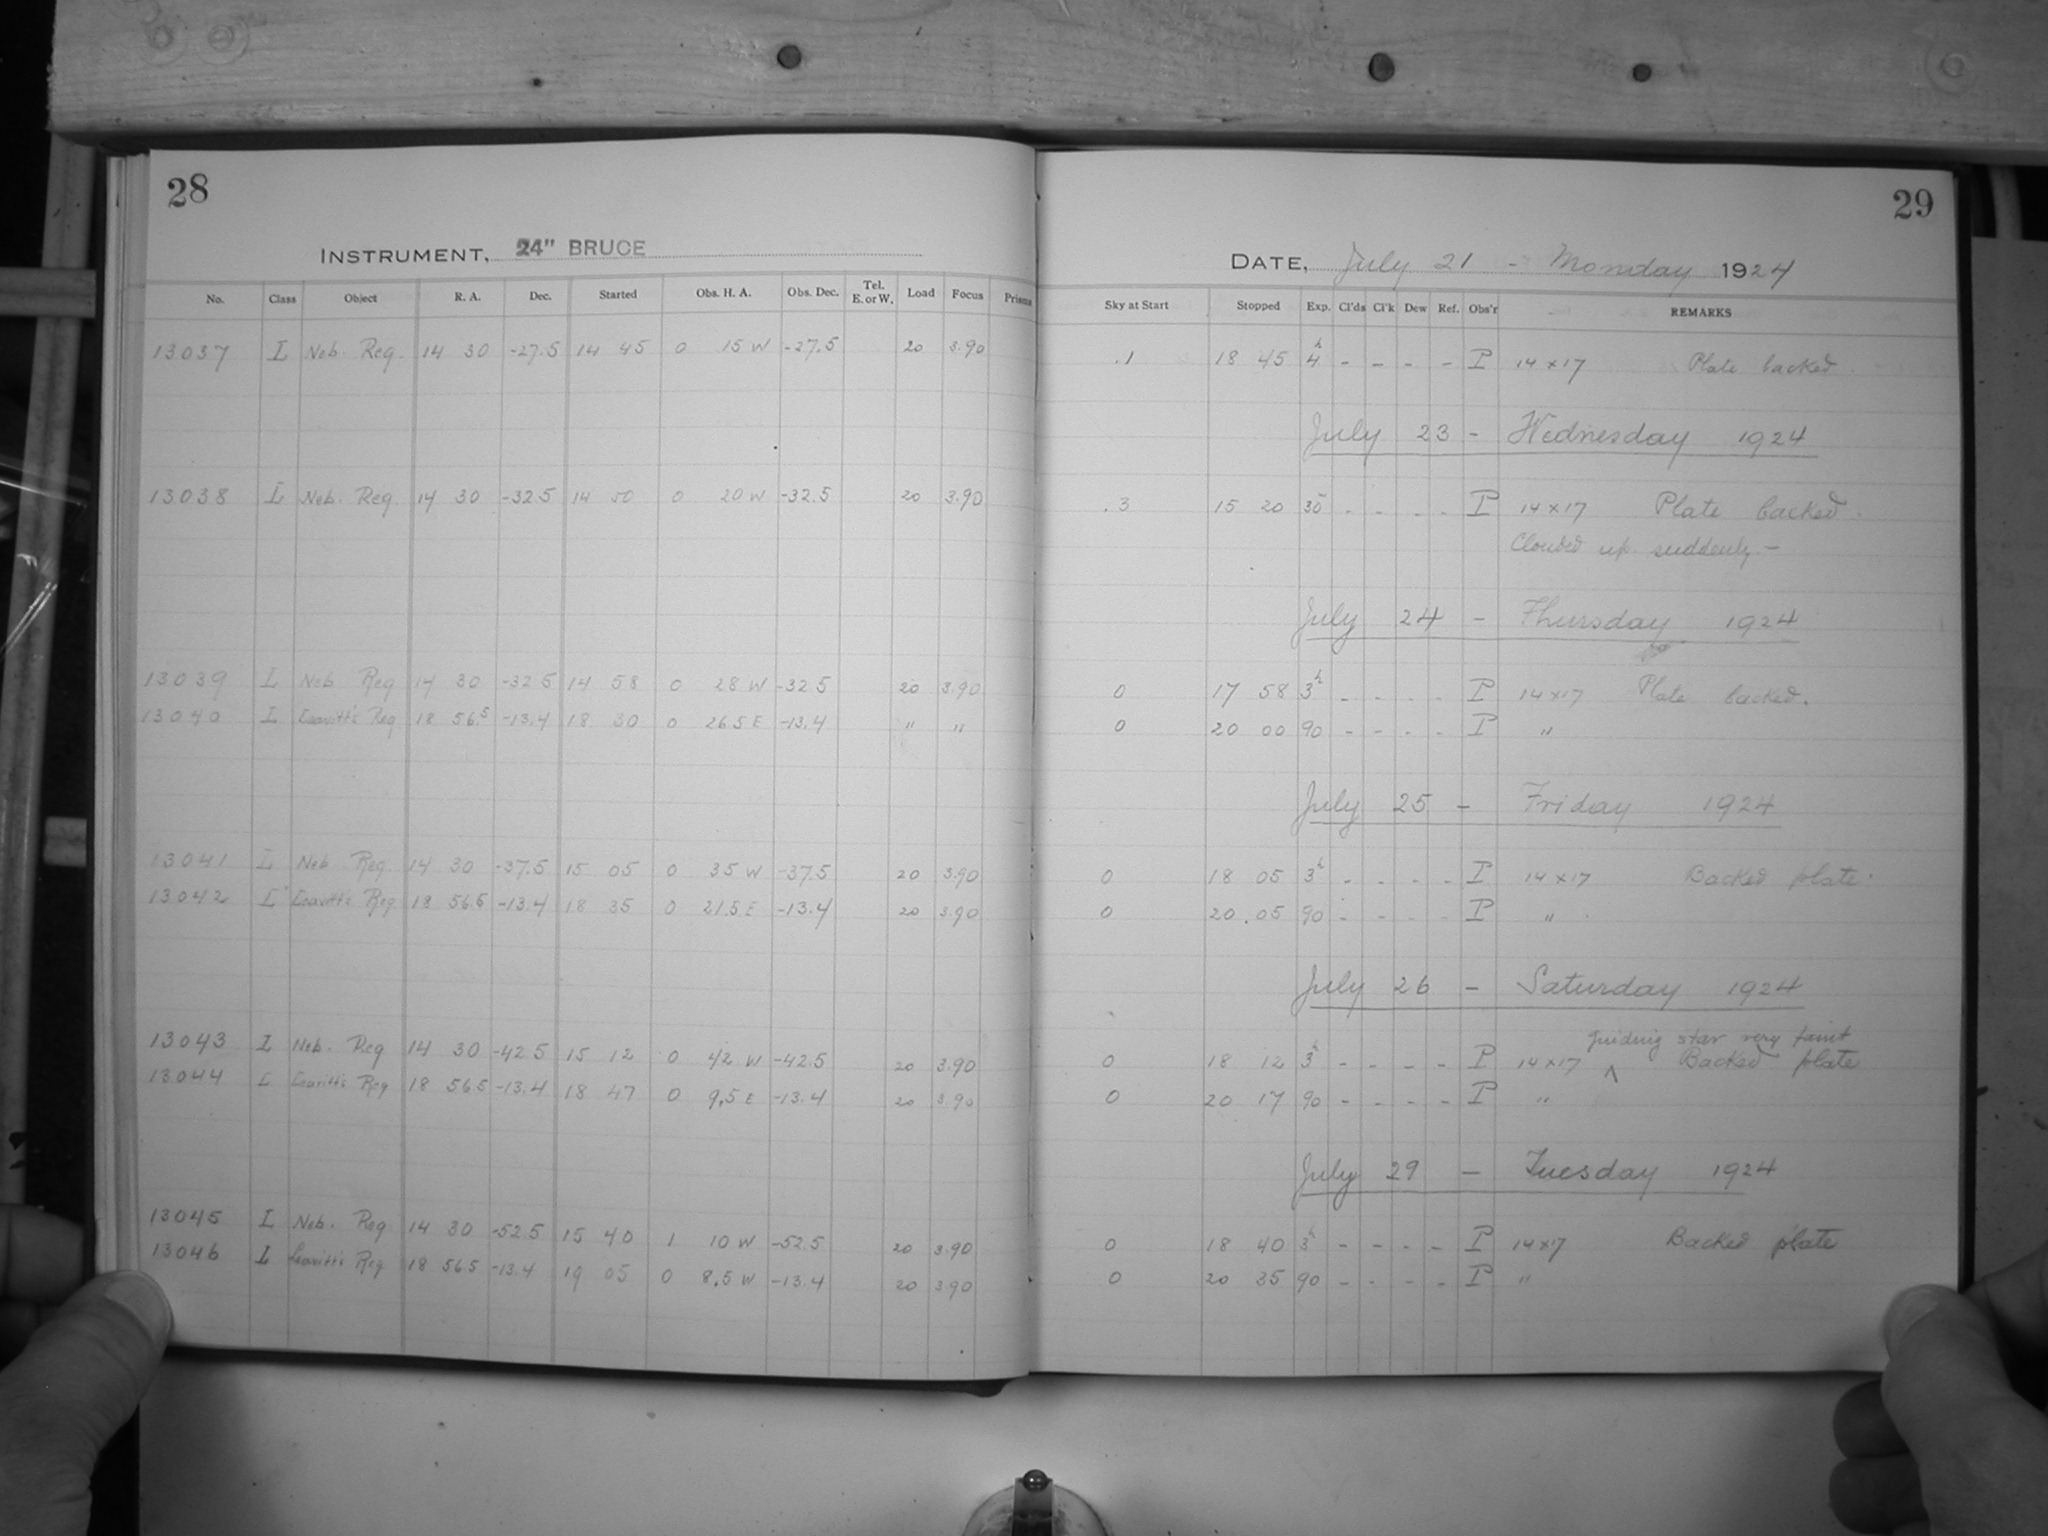 28
INSTRUMENT, 24" BRUCE
No. Class Object R. A. Dec. Started Obs. H. A. Obs. Dec. Tel. E. or W. Load Focus Prisms
13037 I Neb. Reg. 14 30 -27.5 14 45 0 15 W -27.5 20 3.90
13038 I Neb. Reg. 14 30 -32.5 14 50 0 20 W -32.5 20 3.90
13039 I Neb Reg 14 30 -32 5 14 58 0 28 W -32 5 20 3.90
13040 I Leavitt's Reg 18 56.5 -13.4 18 30 0 26 5 E -13.4 " "
13041 I Neb Reg. 14 30 -37.5 15 05 0 35 W -37.5 20 3.90
13042 I Leavitt's Reg 18 56.5 -13.4 18 35 0 21.5 E -13.4 20 3.90
13043 I Neb. Reg 14 30 -42.5 15 12 0 42 W -42.5 20 3.90
13044 I Leavitt's Reg 18 56.5 -13.4 18 47 0 9.5 E -13.4 20 3.90
13045 I Neb. Reg 14 30 -52.5 15 40 1 10 W -52.5 20 3.90
13046 I Leavitt's Reg 18 56.5 -13.4 19 05 0 8.5 W -13.4 20 3.90
29
DATE, July 21 - Monday 1924
Sky at Start Stopped Exp. Cl'ds Cl'k Dew Ref. Obs'r REMARKS
.1 18 45 4h - - - - P 14 x 17 Plate backed
July 23 - Wednesday 1924
.3 15 20 30 - - - - P 14 x 17 Plate backed.
Clouded up suddenly. -
July 24 - Thursday 1924
0 17 58 3h - - - - P 14 x 17 Plate backed.
0 20 00 90 - - - - P "
July 25 - Friday 1924
0 18 05 3h - - - - P 14 x 17 Backed plate.
0 20.05 90 - - - - P "
July 26 - Saturday 1924
guiding star very faint
0 18 12 3h - - - - P 14 x 17 ^ Backed plate
0 20 17 90 - - - - P "
July 29 - Tuesday 1924
0 18 40 3h - - - - P 14 x 17 Backed plate
0 20 35 90 - - - - P "